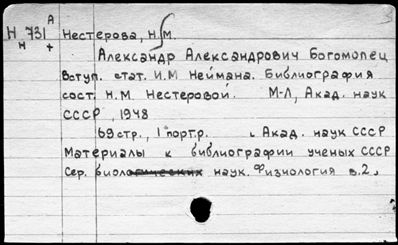 А
Н 731 Нестерова, Н.М.
н +
Александр Александрович Богомолец
Вступ. стат. И.М Неймана. Библиография
сост. Н.М. Нестеровой. М-Л, Акад. наук
СССР, 1948
69 стр., 1 портр. Акад. наук СССР
Материалы к библиографии ученых СССР
Сер. биологических наук. Физиология в.2.